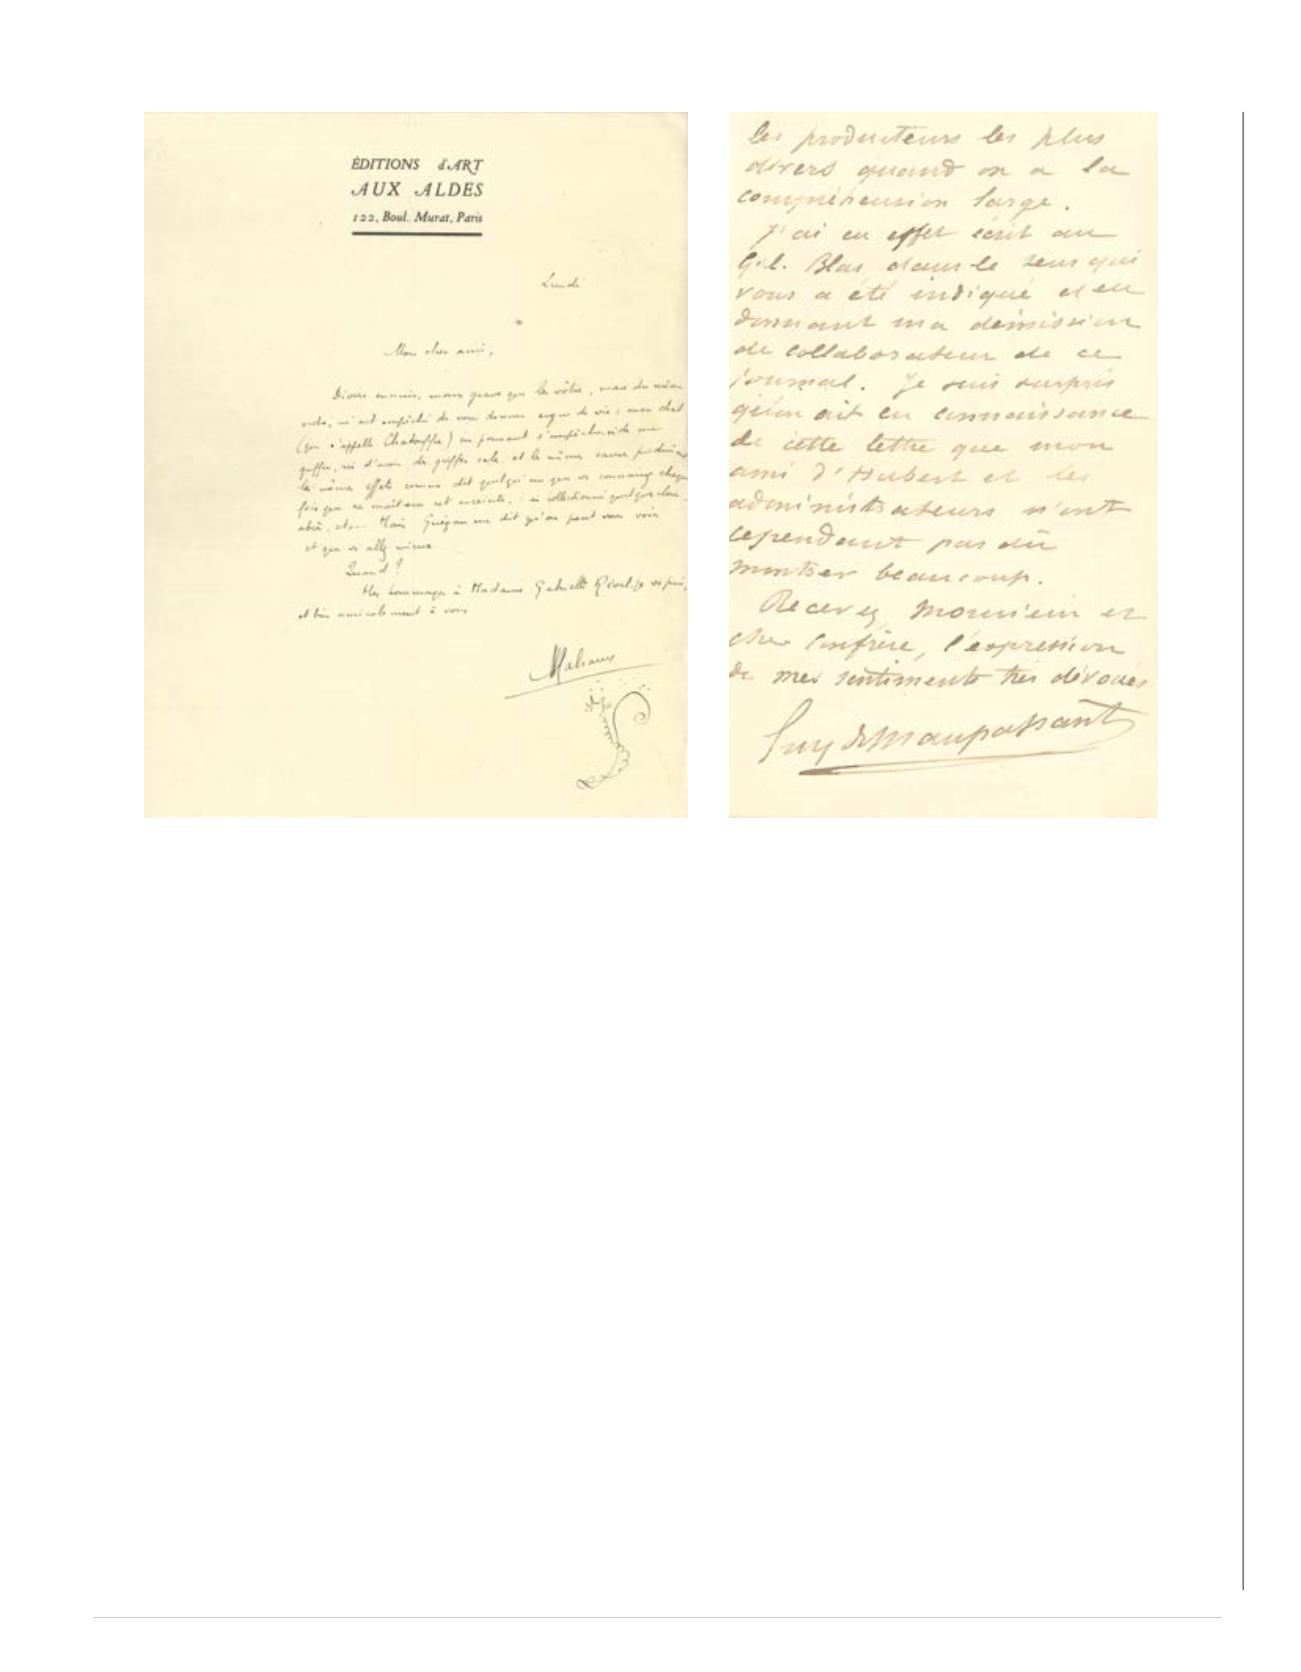 ÉDITIONS d'ART
AUX ALDES
122, Boul. Murat, Paris
Lundi
Mon cher ami,
Divers ennuis, moins graves que le vôtre, mais du même
ordre, m'ont empêché de vous donner signe de vie : mon chat
(qui s'appelle Chatouffle) en prenant
griffer, ni d'avoir la griffe sale, et les mêmes causes produisant
les mêmes effets comme dit quelqu'un que vs connaissez chaque
fois que sa maîtresse est enceinte, j'ai collectionné quelques clous,
abcès, etc... Mais Guégan me dit qu'on peut vous voir
et que vs allez mieux.
Quand ?
Mes hommages à Madame Gabrielle Réval, je vs prie,
et bien amicalement à vous
Malraux
les producteurs les plus
divers quand on a la
compréhension large.
J'ai en effet écrit au
Gil. Blas dans le sens qui
vous a été indiqué et en
donnant ma démission
de collaborateur de ce
journal. Je suis surpris
qu'on ait eu connaissance
de cette lettre que mon
ami d'Hubert et les
administrateurs n'ont
cependant pas dû
montrer beaucoup.
Recevez, Monsieur et
cher confrère, l'expression
de mes sentiments très dévoués
Guy de Maupassant